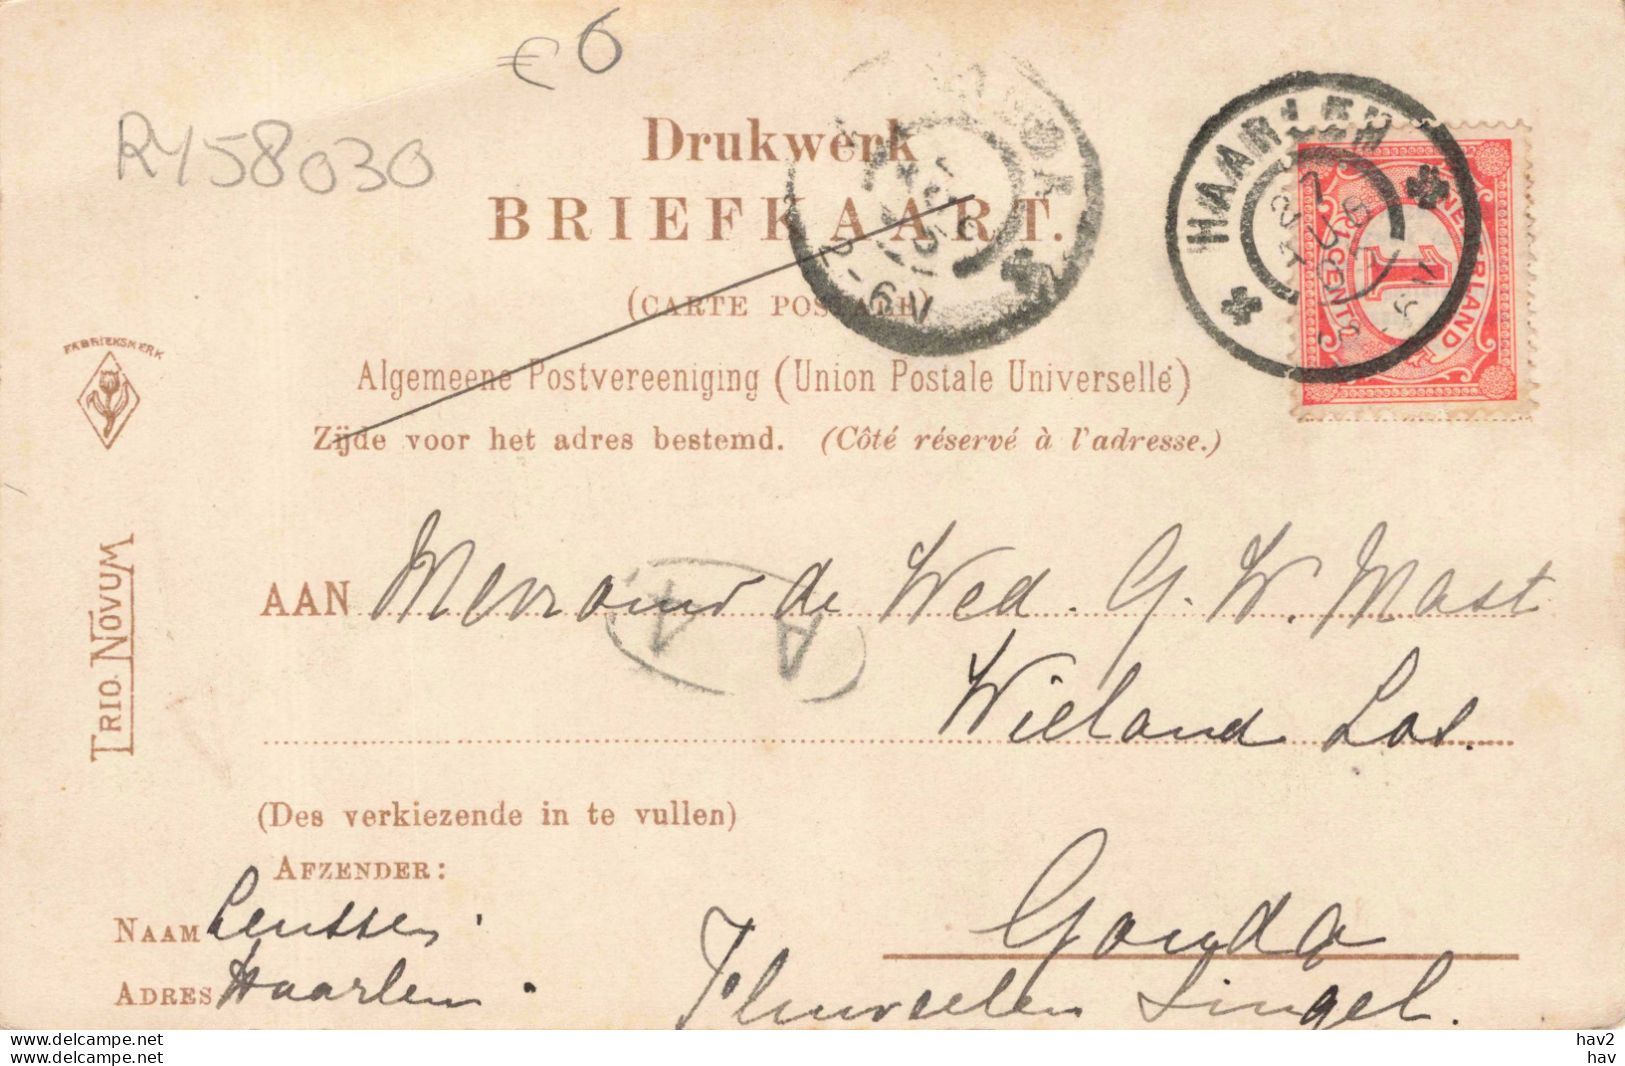 €6
RY58030
Drukwerk
BRIEFKAART.
(CARTE POSTALE)
Algemeene Postvereeniging (Union Postale Universelle)
Zijde voor het adres bestemd. (Côté réservé à l'adresse.)
HAARLEM
NEDERLAND
1
1 CENT
FABRIEKSMERK
TRIO NOVUM
AAN Mevrouw de Wed. G. W. Mast
A
Wieland Los.
(Des verkiezende in te vullen)
AFZENDER:
NAAM Lenssen.
Gouda
ADRES Haarlem.
Fluweelen Singel.
hav2
hav